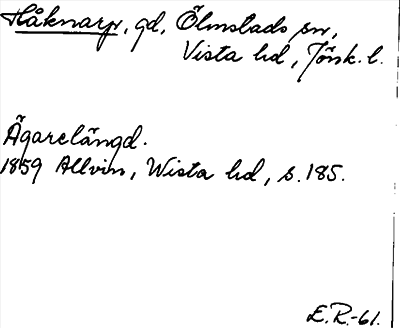 Håknarp, gd, Ölmstads sn,
Vista hd, Jönk. l.
Ägarelängd.
1859 Allvin, Wista hd, s. 185.
E.R.-61.